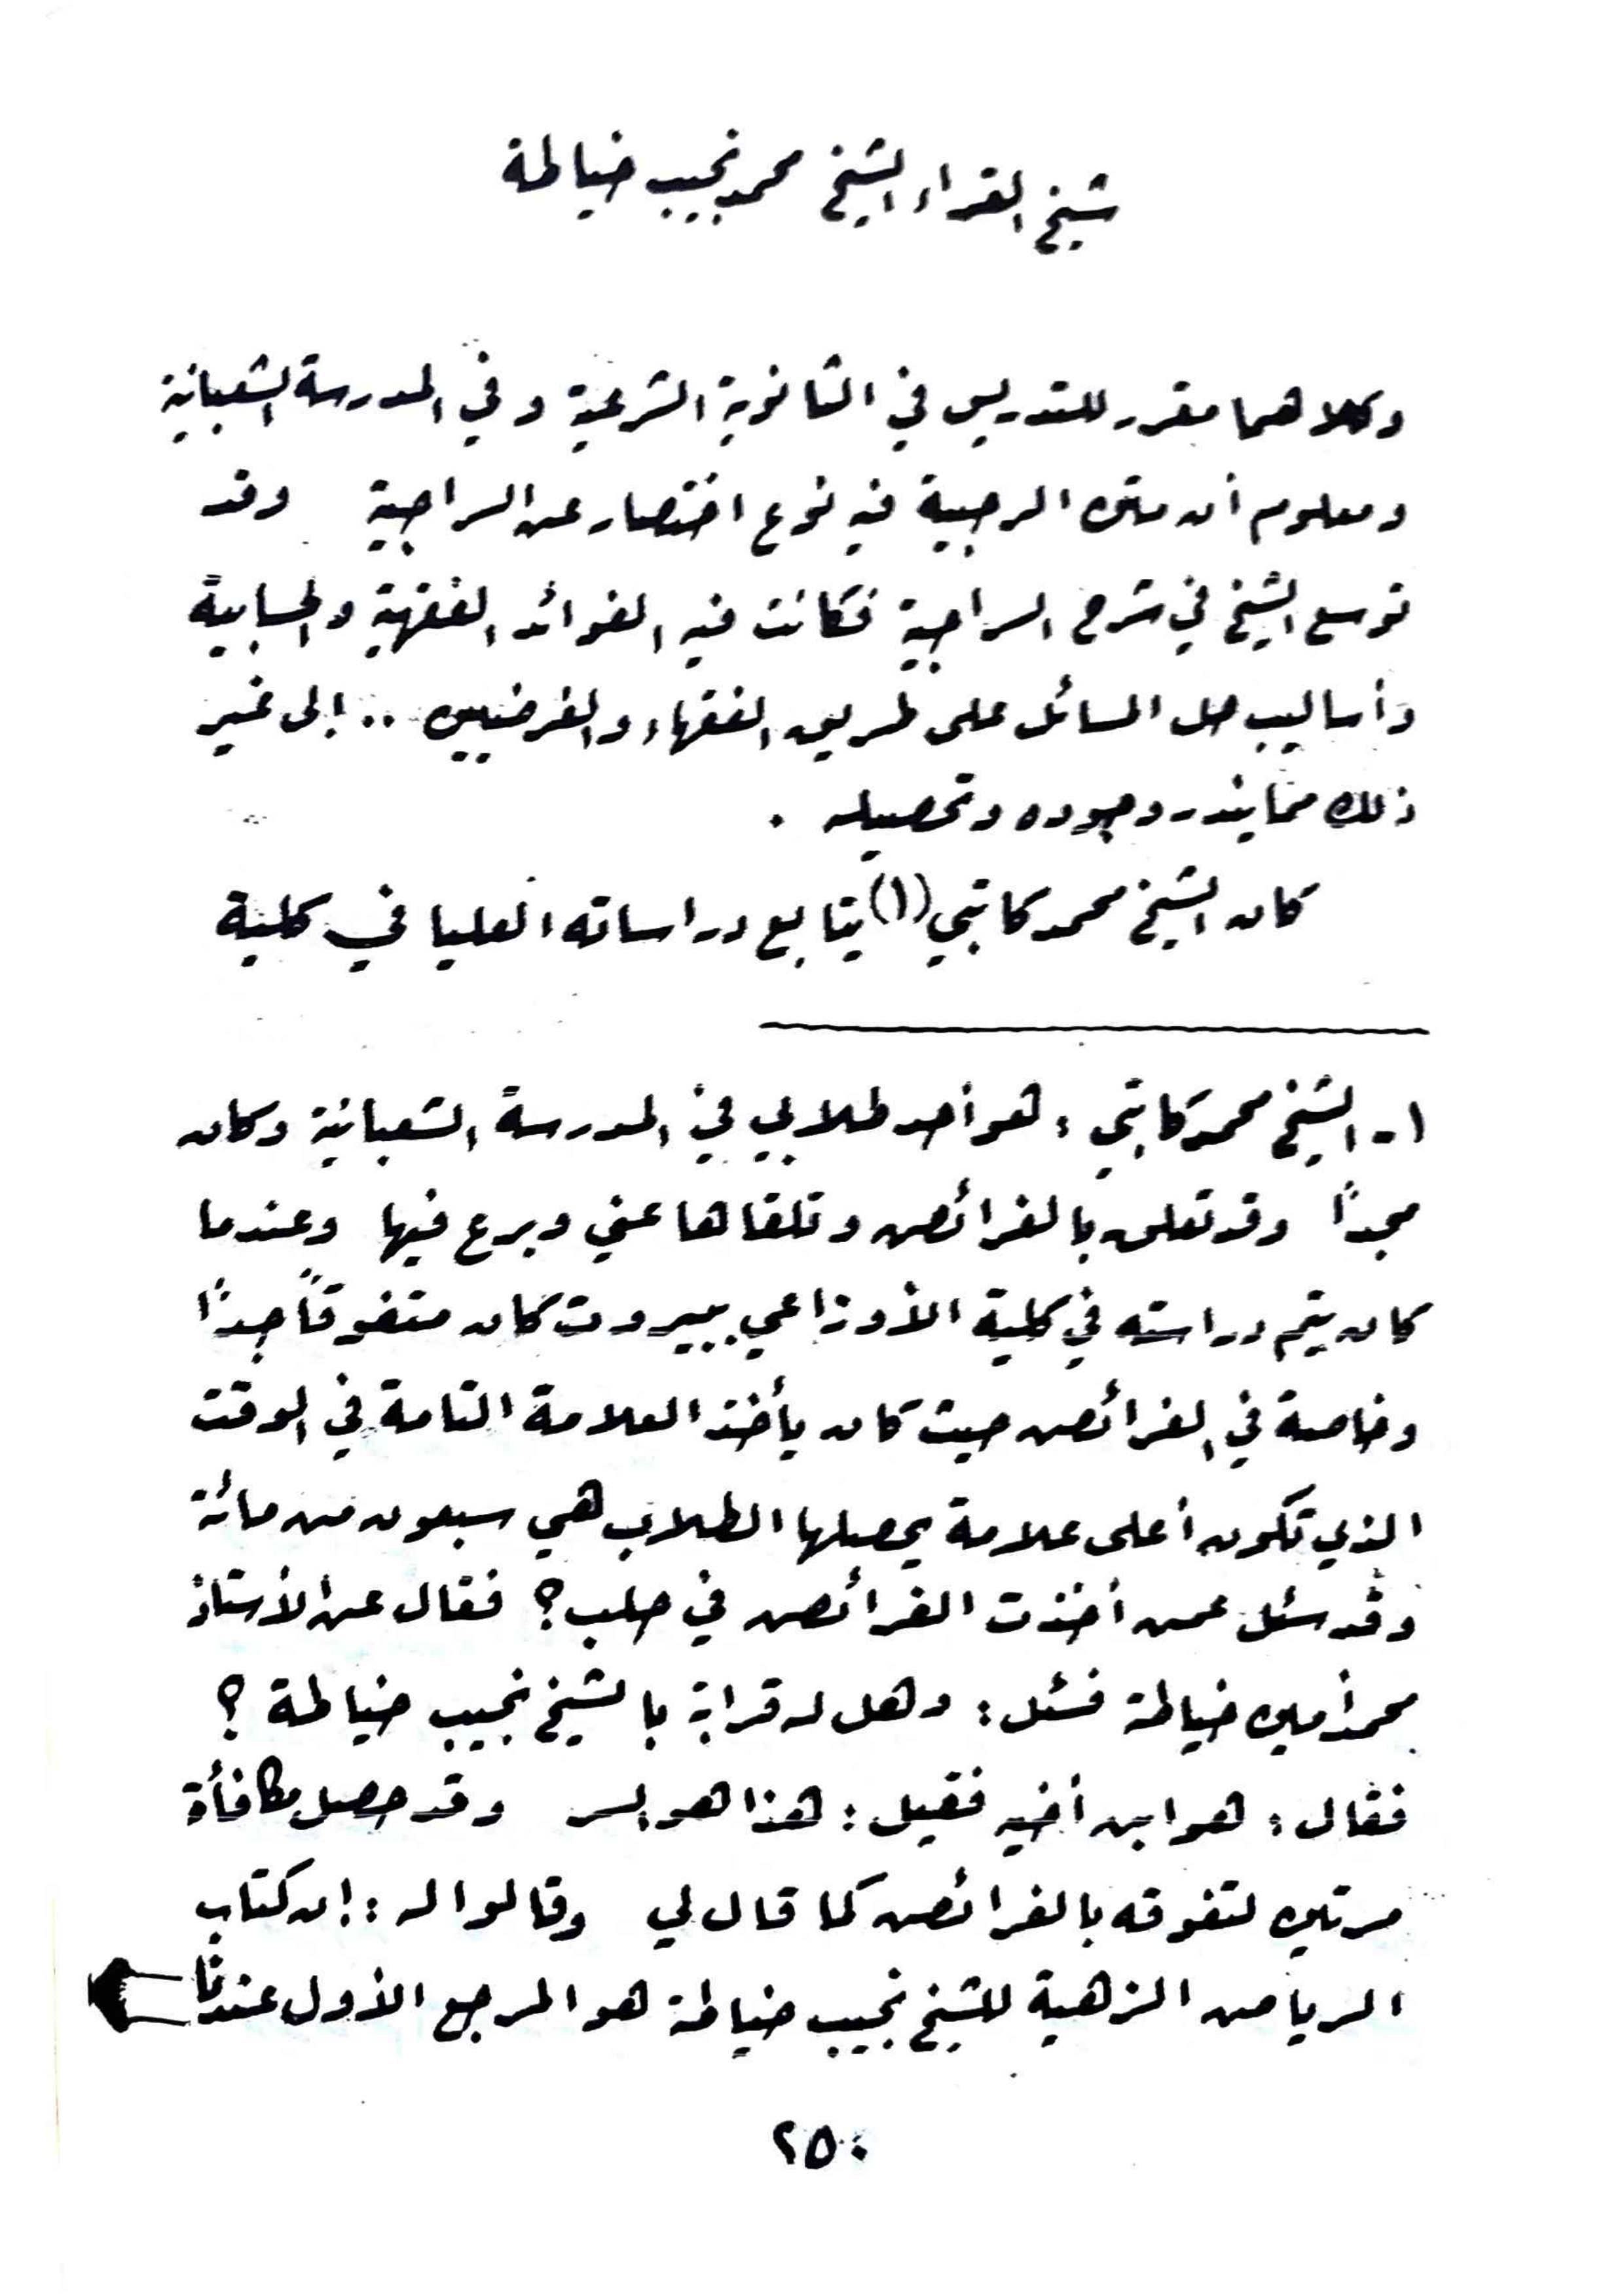 شيخ القراء الشيخ محمد نجيب خياطة
وكلاهما مقرر للتدريس في الثانوية الشرعية وفي المدرسة الشعبانية
ومعلوم أن متن الرحبية فيه نوع اختصار عن السراجية وقد
توسع الشيخ في شرح السراجية فكانت فيه الفوائد الفقهية والحسابية
وأساليب حل المسائل على طريق الفقهاء والفرضيين .. إلى غير
ذلك مما يندر وجوده وتحصيله .
كان الشيخ محمد كاتبي (١) يتابع دراساته العليا في كلية
١ - الشيخ محمد كاتبي : هو أحد طلابي في المدرسة الشعبانية وكان
مجداً وقد تعلق بالفرائض وتلقاها عني وبرع فيها وعندما
كان يتم دراسته في كلية الأوزاعي ببيروت كان متفوقاً جداً
وخاصة في الفرائض حيث كان يأخذ العلامة التامة في الوقت
الذي تكون أعلى علامة يحصلها الطلاب هي سبعون من مائة
وقد سئل عمن أخذت الفرائض في حلب ؟ فقال عن الأستاذ
محمد أمين خياطة فسئل : وهل له قرابة بالشيخ نجيب خياطة ؟
فقال : هو ابن أخيه فقيل : هذا هو السر وقد حصل مكافأة
مرتين لتفوقه بالفرائض كما قال لي وقالوا له : إن كتاب
الرياض الزهية للشيخ نجيب خياطة هو المرجع الأول عندنا
٢٥٠